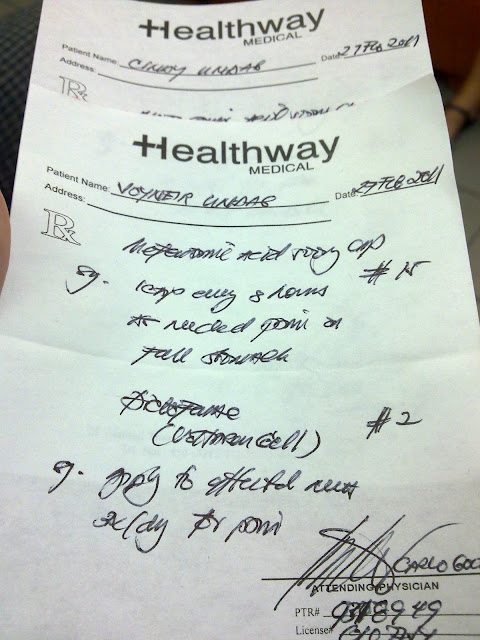 Healthway
MEDICAL
Patient Name: CINDY UNDAG Date 27 Feb 2011
Address:
Rx
Healthway
MEDICAL
Patient Name: VOYNEIR UNDAG Date 27 Feb 2011
Address:
Rx
Mefenamic Acid 500mg cap
# 15
Sg. 1 cap every 8 hours
as needed pain on
full stomach
Diclofenac
(Voltaren Gell) # 2
Sg. apply to affected
2x/day for pain
CARLO
ATTENDING PHYSICIAN
PTR#
License#